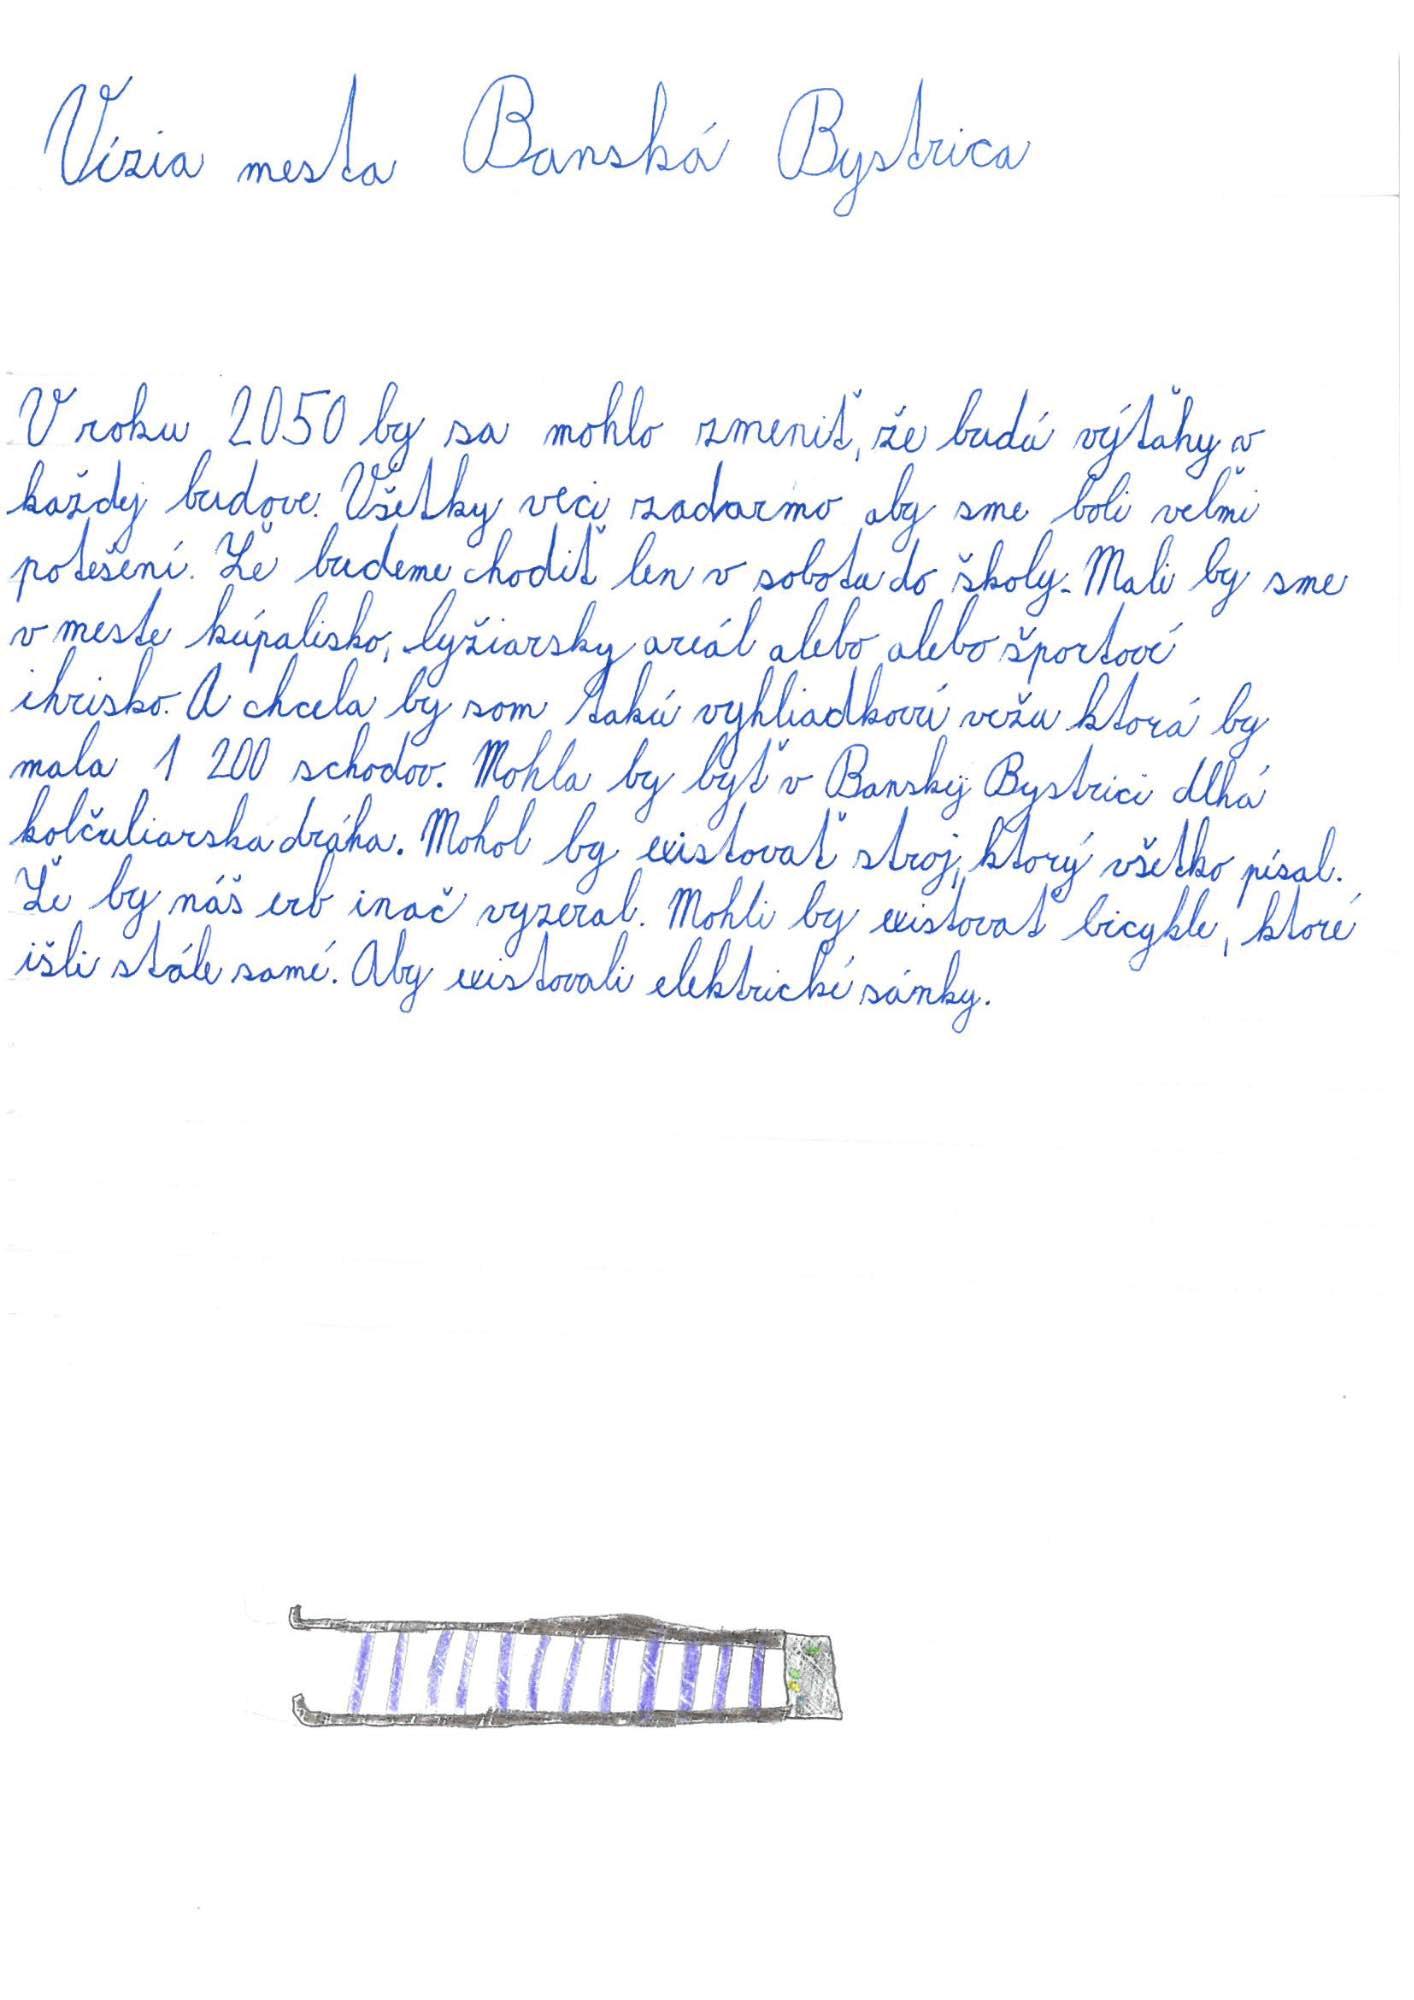 Vízia mesta Banská Bystrica
V roku 2050 by sa mohlo zmeniť, že budú výťahy v
každej budove. Všetky veci zadarmo aby sme boli veľmi
potešení. Že budeme chodiť len v sobotu do školy. Mali by sme
v meste kúpalisko, lyžiarsky areál alebo alebo športové
ihrisko. A chcela by som takú vyhliadkovú vežu ktorá by
mala 1 200 schodov. Mohla by byť v Banskej Bystrici dlhá
kolčuliarska dráha. Mohol by existovať stroj, ktorý všetko písal.
Že by náš erb inač vyzeral. Mohli by existovať bicykle, ktoré
išli stále samé. Aby existovali elektrické sánky.